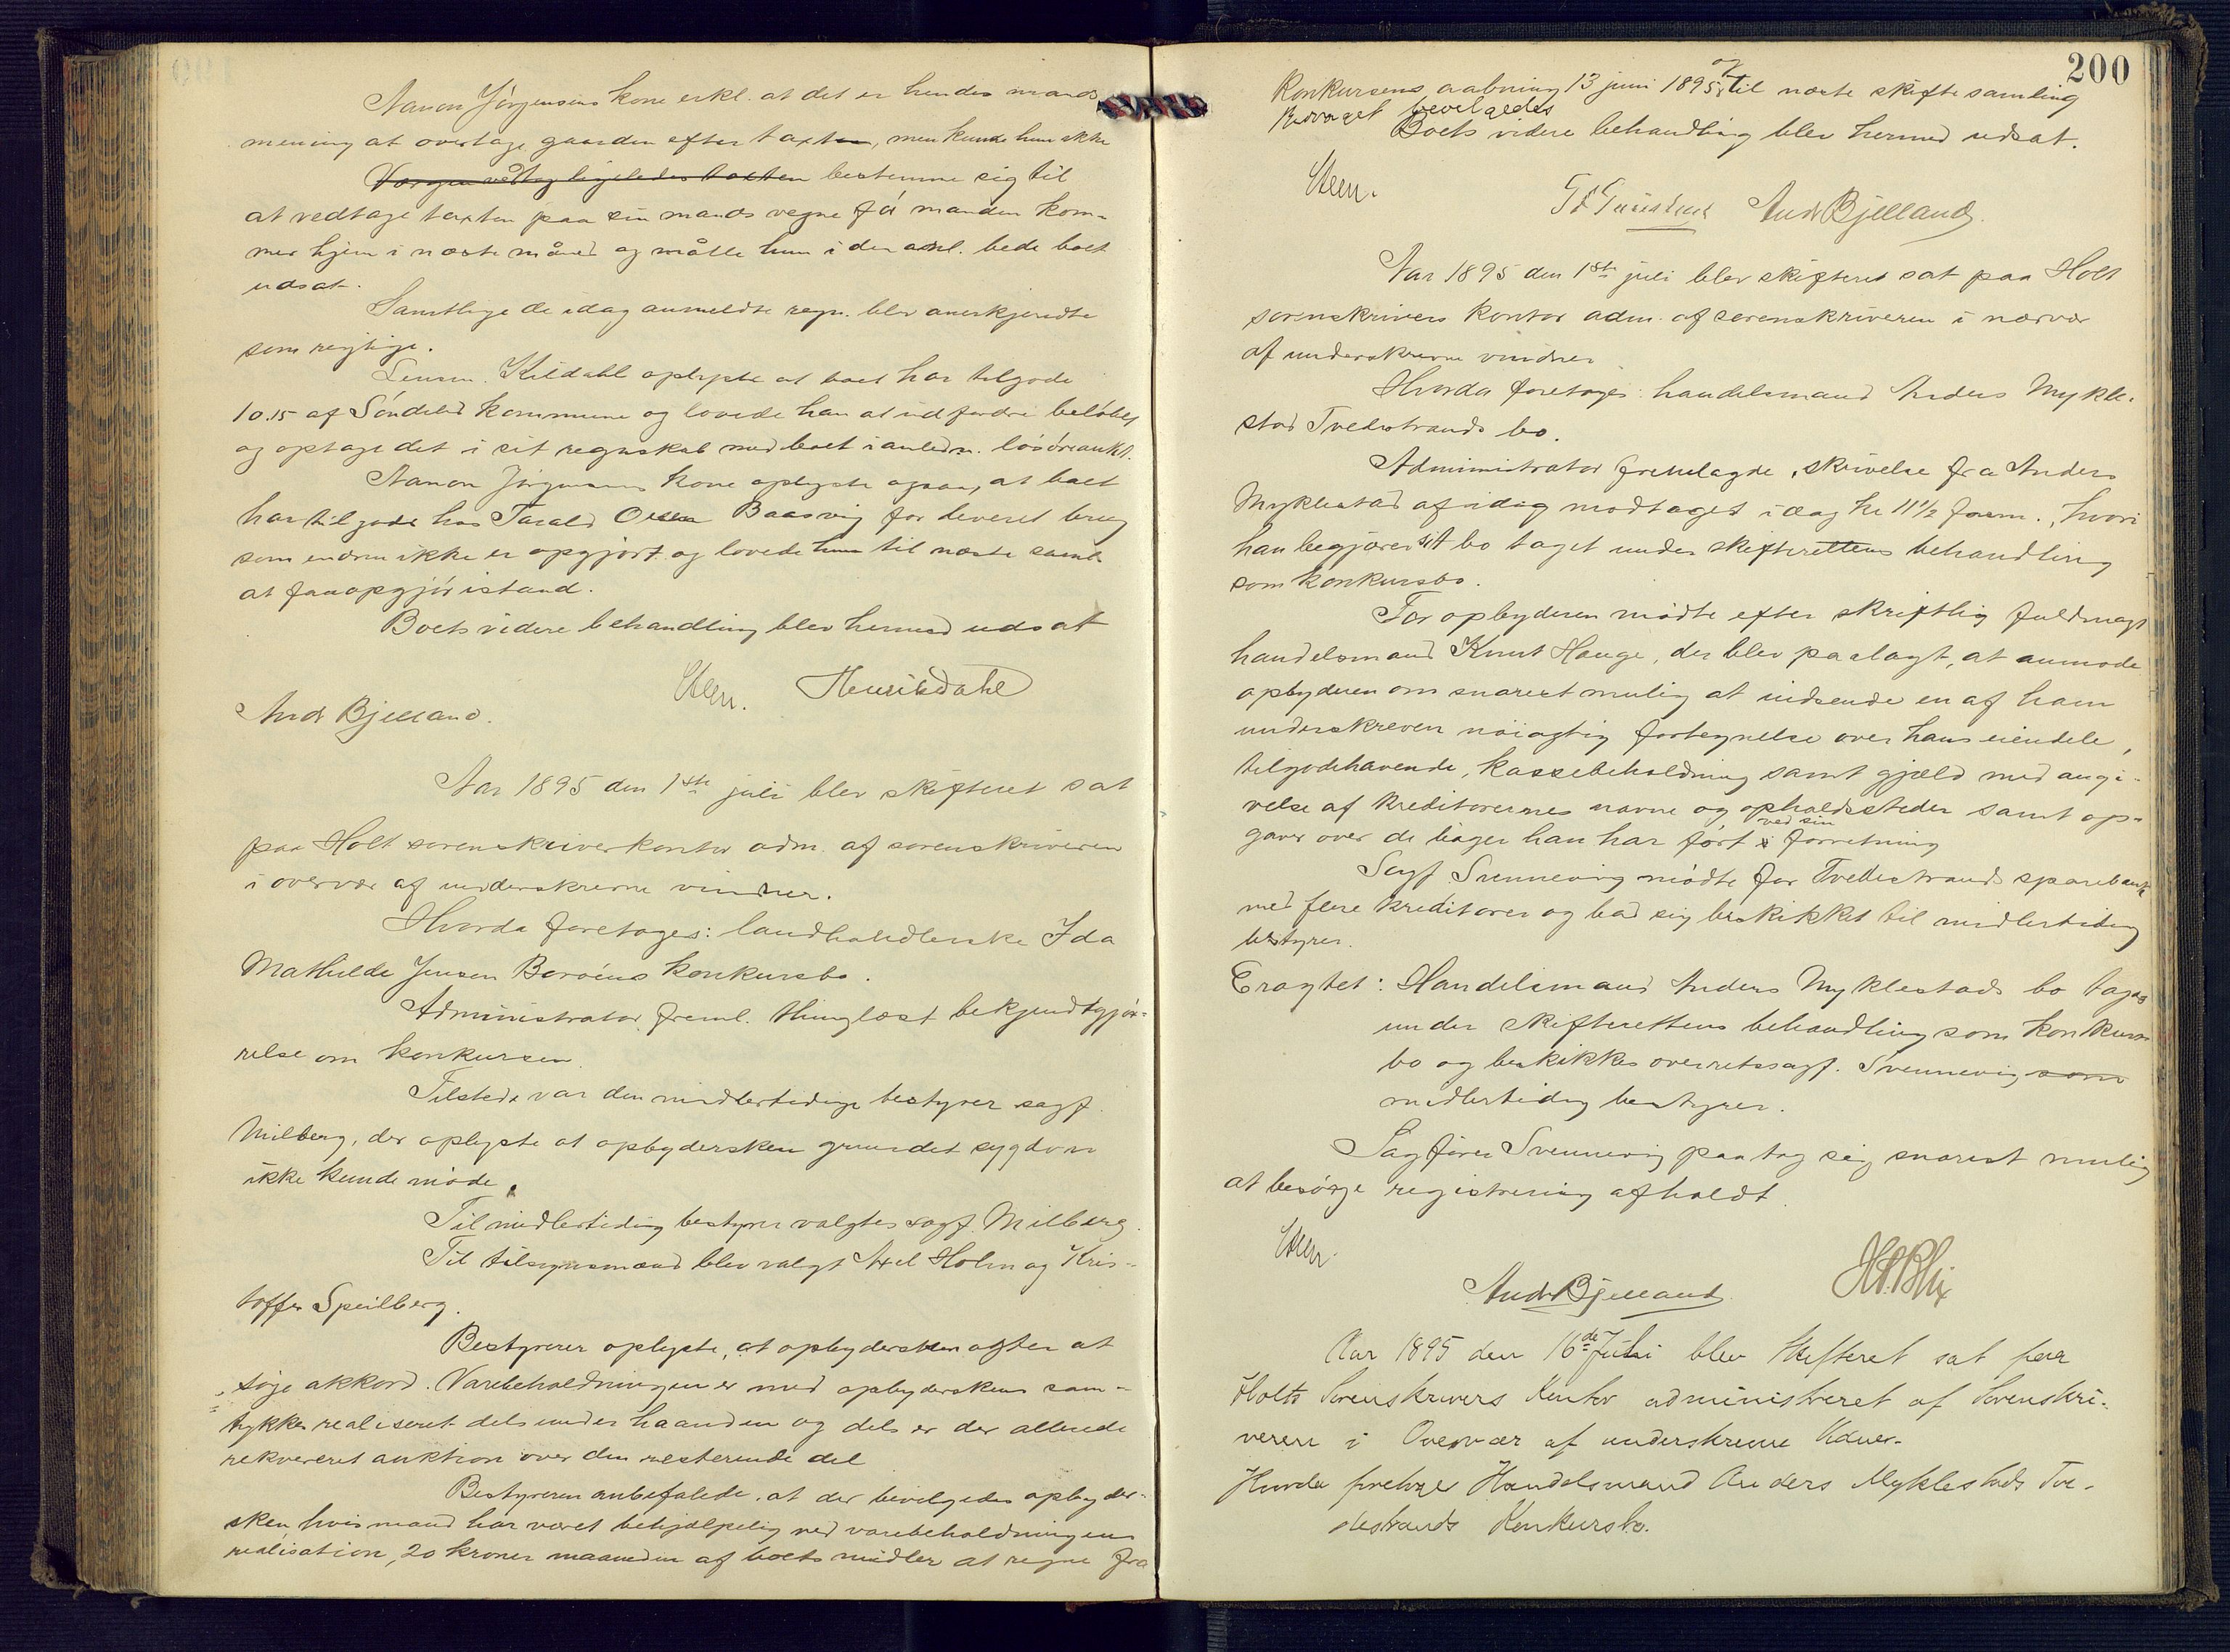 Nanon Jörgensens kone erkl. at det er hendes mands
mening at overtage gaarden efter taxten, men kunde hun ikke
Vergen vedtog ligeledes taxten bestemme sig til
at vedtage taxten paa sin mands vegne før manden kom-
mer hjem i næste måned og måtte hun i den anl. bede boet
udsat.
Samtlige de idag anmeldte regn. blev anerkjendte
som rigtige.
Lensm. Kildahl oplyste at boet har tilgode
10.15 af Söndeled kommune og lovede han at indfordre beløbet
og optage det i sit regnskab med boet i anledn. lösöreaukt.
Nanon Jörgensens kone oplyste ogsaa, at boet
har tilgode hos Tarald Olsen Baasvig for leveret brug
som endnu ikke er opgjort og lovede hun til næste saml.
at faa opgjör istand.
Boets videre behandling blev hermed udsat
Steen. Henr Kildahl
Andr Bjelland.
Aar 1895 den 1ste juli blev skifteret sat
paa Holt sorenskriverkontor adm. af sorenskriveren
i overvær af underskrevne vidner.
Hvorda foretoges: landhandlerske Ida
Mathilde Jensen Borøens konkursbo.
Administrator freml. thinglæst bekjendtgjör-
relse om konkursen.
Tilstede var den midlertidige bestyrer sagf.
Milberg, der oplyste at opbydersken grundet sygdom
ikke kunde møde.
Til midlertidig bestyrer valgtes sagf. Milberg.
Til tilsynsmænd blev valgt Axel Holm og Kris-
toffer Speilberg.
Bestyrerer oplyste, at opbydersken agter at
söge akkord. Varebeholdningen er med opbyderskens sam-
tykke realiseret dels under haanden og dels er der allerede
rekvireret auktion over den resterende del
Bestyreren anbefalede, at der bevilgedes opbyder-
sken hvis mand har været behjælpelig ved varebeholdningens
realisation, 20 kroner maaneden af boets midler at regne fra
200
konkursens aabning 13 juni 1895 og til næste skiftesamling
Bidraget bevilgedes
Boets videre behandling blev hermed udsat.
Steen.
Andr Bjelland.
Aar 1895 den 1ste juli blev skifteret sat paa Holt
sorenskrivers kontor adm. af sorenskriveren i nærvær
af underskrevne vidner
Hvorda foretoges: handelsmand Anders Mykle-
stad Tvedestrands bo.
Administrator fremlagde, skrivelse fra Anders
Myklestad af idag modtaget idag kl 11½ form., hvori
han begjærer sit bo taget under skifterettens behandling
som konkursbo.
For opbyderen mödte efter skriftlig fuldmagt
handelsmand Knut Hauge, der blev paalagt, at anmode
opbyderen om snarest mulig at indsende en af ham
underskreven nöiagtig fortegnelse over hans eiendele,
tilgodehavende, kassebeholdning samt gjæld med angi-
velse af kreditorernes navne og opholdssteder samt op-
gaver over de böger han har fört i ved sin forretning
Sagf. Svennevig mödte for Tvedestrands sparebank
med flere kreditorer og bad sig beskikket til midlertidig
bestyrer.
Eragtet: Handelsmand Anders Myklestads bo tages
under skifterettens behandling som konkurs
bo og beskikkes overretssagf. Svennevig som
midlertidig bestyrer.
Sagförer Svennevig paatog sig snarest mulig
at besörge registrering afholdt.
Steen.
Andr Bjelland. H.P. Blix
Aar 1895 den 16de Juli blev Skifteret sat paa
Holts Sorenskrivers Kontor administreret af Sorenskri-
veren i Overvær af underskrevne Vidner.
Hvorda foretoges Handelsmand Anders Myklestads Tve-
destrands Konkursbo.